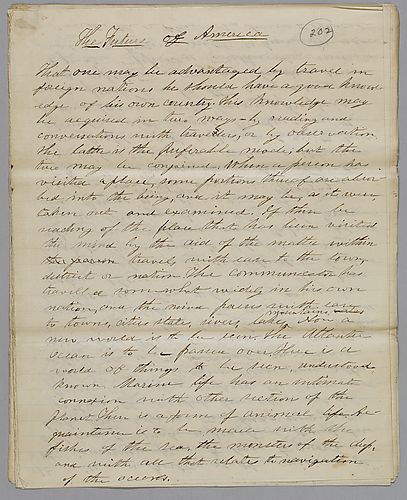 The Future of America
202
That one may be advantaged by travel in
foreign nations he should have a good knowl
edge of his own country. This knowledge may
be acquired in two ways - by reading and
conversations with travelers, or by observation
the latter is the preferable mode; but the
two may be conjoined. When a person has
visited a place, some portions thereof are absor-
bed into the being, and it may be, as it were,
taken out and examined. If there be
reading of the place that has been visited
the mind by the aid of the matter within
travels with ease to the town,
district or nation. The communicator has
travelled somewhat widely in his own
nation, and the mind passes with ease
mountains
to towns, cities, states, rivers, lakes. Now a
new world is to be seen. The Atlantic
ocean is to be passed over. There is a
world of things to be seen, understood
known. Marine life has an intimate
connexion with other section of the
planet. There is a form of animal life.
is to be made with the
fishes of the sea, the monsters of the deep,
and with all that relates to navigation
of the oceans.